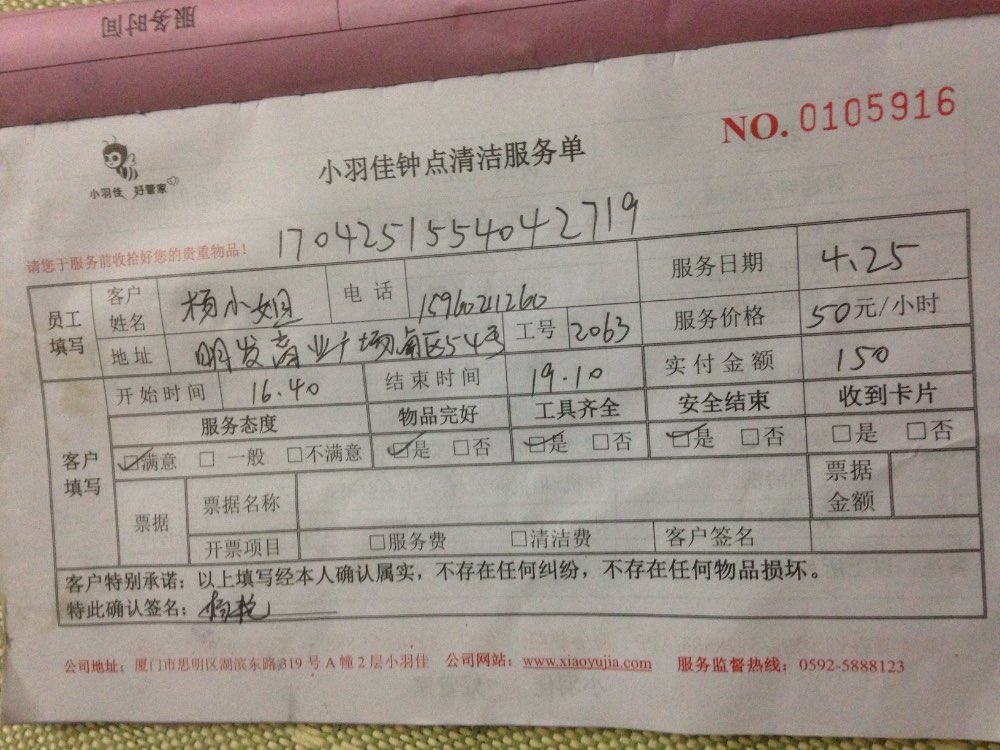 服务时间
NO. 0105916
小羽佳 好管家
小羽佳钟点清洁服务单
请您于服务前收拾好您的贵重物品！
1704251554042719
员工填写 客户姓名 杨小姐 电话 15960211260 服务日期 4.25
地址 明发商业广场南区54号 工号 2063 服务价格 50元/小时
客户填写 开始时间 16.40 结束时间 19.10 实付金额 150
服务态度 物品完好 工具齐全 安全结束 收到卡片
☑满意 □一般 □不满意 ☑是 □否 ☑是 □否 ☑是 □否 □是 □否
票据 票据名称 票据金额
开票项目 □服务费 □清洁费 客户签名
客户特别承诺：以上填写经本人确认属实，不存在任何纠纷，不存在任何物品损坏。
特此确认签名：
公司地址：厦门市思明区湖滨东路319号A幢2层小羽佳 公司网站：www.xiaoyujia.com 服务监督热线：0592-5888123